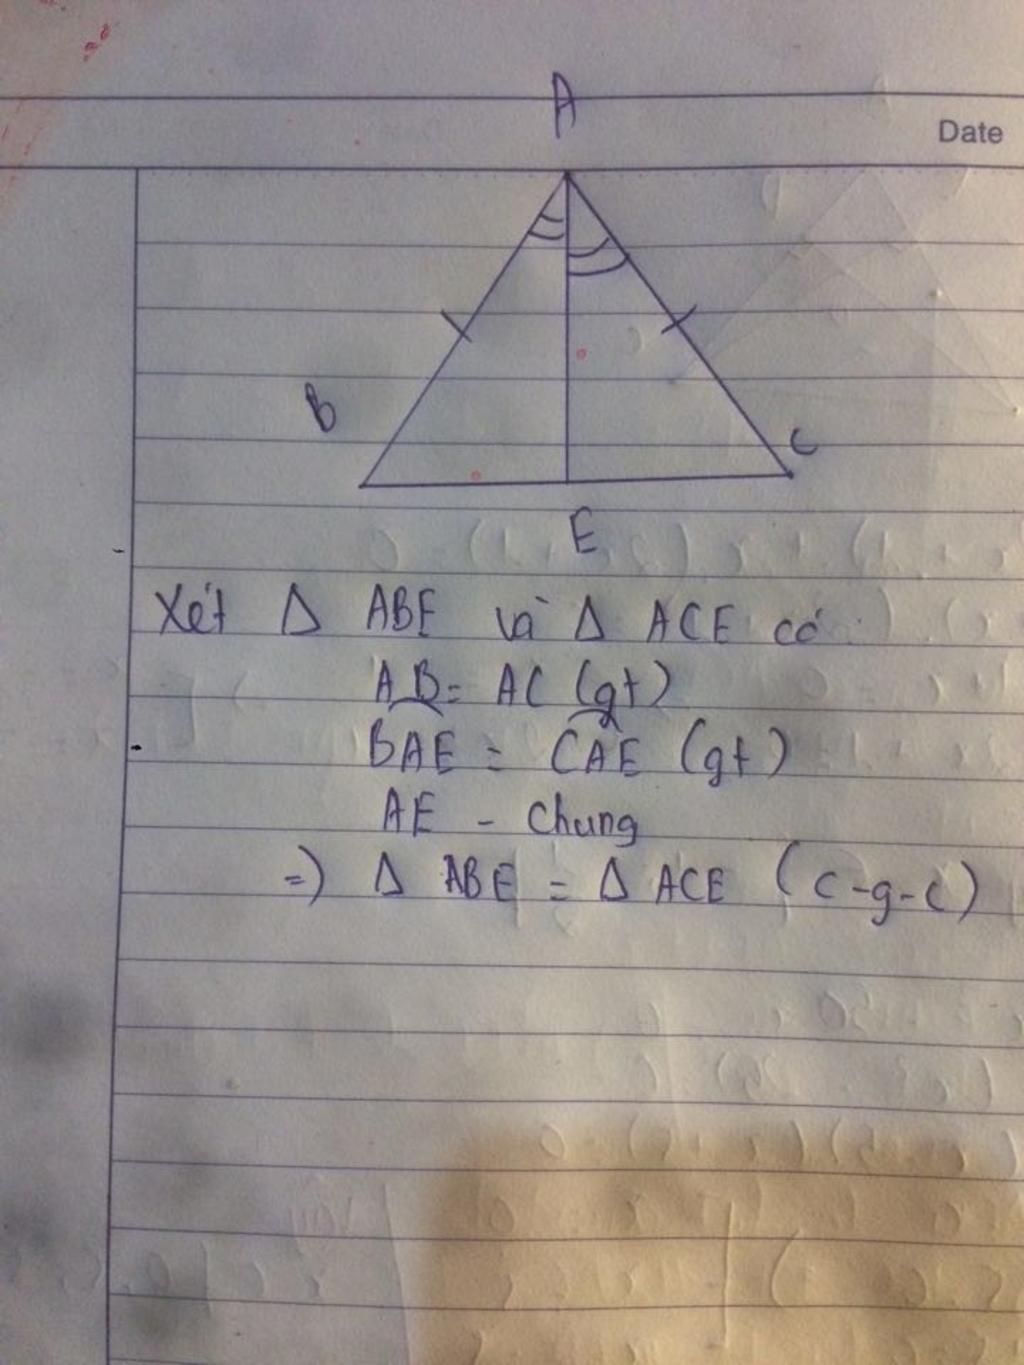 A
Date
B
C
E
Xét Δ ABE và Δ ACE có
AB = AC (gt)
BAE = CAE (gt)
AE - Chung
=) Δ ABE = Δ ACE (c-g-c)